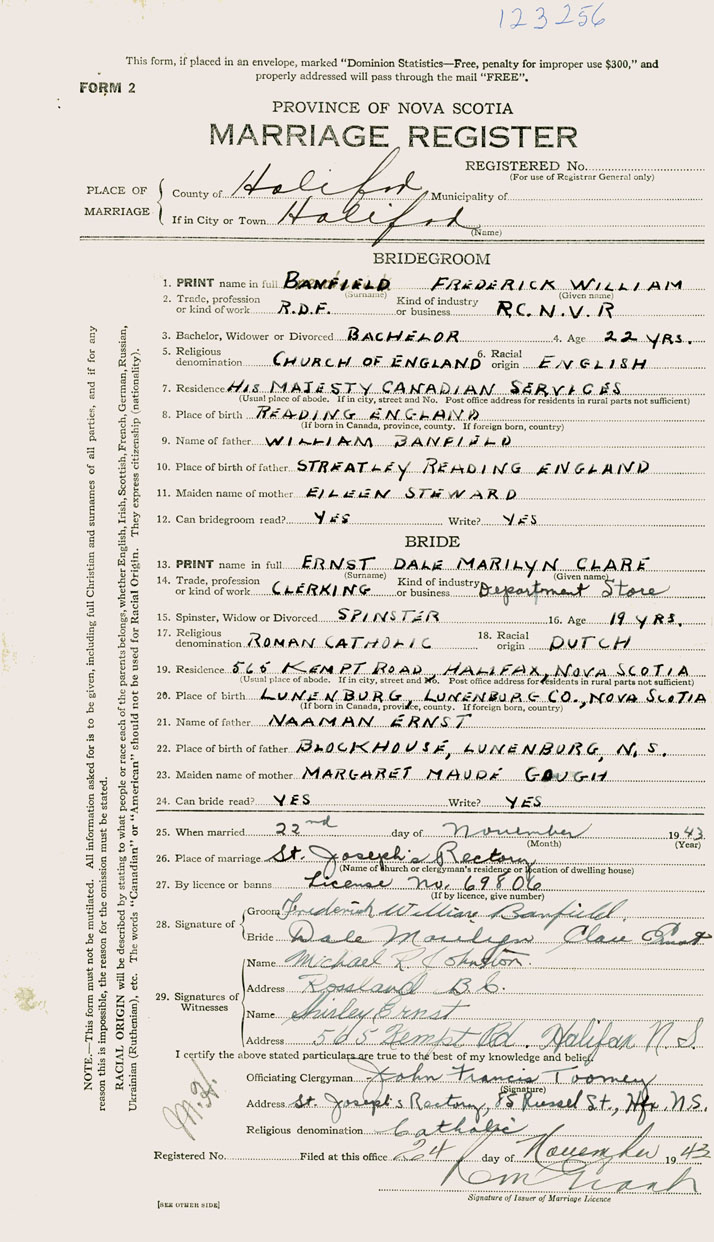 123256
This form, if placed in an envelope, marked "Dominion Statistics—Free, penalty for improper use $300," and
properly addressed will pass through the mail "FREE".
FORM 2
PROVINCE OF NOVA SCOTIA
MARRIAGE REGISTER
REGISTERED No.
(For use of Registrar General only)
PLACE OF MARRIAGE
County of Halifax Municipality of
If in City or Town Halifax
(Name)
BRIDEGROOM
1. PRINT name in full BANFIELD FREDERICK WILLIAM
(Surname) (Given name)
2. Trade, profession or kind of work R.D.F. Kind of industry or business R.C.N.V.R
3. Bachelor, Widower or Divorced BACHELOR 4. Age 22 YRS.
5. Religious denomination CHURCH OF ENGLAND 6. Racial origin ENGLISH
7. Residence HIS MAJESTY CANADIAN SERVICES
(Usual place of abode. If in city, street and No. Post office address for residents in rural parts not sufficient)
8. Place of birth READING ENGLAND
(If born in Canada, province, county. If foreign born, country)
9. Name of father WILLIAM BANFIELD
10. Place of birth of father STREATLEY READING ENGLAND
11. Maiden name of mother EILEEN STEWARD
12. Can bridegroom read? YES Write? YES
BRIDE
13. PRINT name in full ERNST DALE MARILYN CLARE
(Surname) (Given name)
14. Trade, profession or kind of work CLERKING Kind of industry or business Department Store
15. Spinster, Widow or Divorced SPINSTER 16. Age 19 YRS.
17. Religious denomination ROMAN CATHOLIC 18. Racial origin DUTCH
19. Residence 565 KEMPT ROAD, HALIFAX, NOVA SCOTIA
(Usual place of abode. If in city, street and No. Post office address for residents in rural parts not sufficient)
20. Place of birth LUNENBURG, LUNENBURG CO., NOVA SCOTIA
(If born in Canada, province, county. If foreign born, country)
21. Name of father NAAMAN ERNST
22. Place of birth of father BLOCKHOUSE, LUNENBURG, N.S.
23. Maiden name of mother MARGARET MAUDE GOUGH
24. Can bride read? YES Write? YES
25. When married 22nd day of November 1943
(Month) (Year)
26. Place of marriage St. Joseph's Rectory
(Name of church or clergyman's residence or location of dwelling house)
27. By licence or banns License No. 69806
(If by licence, give number)
28. Signature of
Groom Frederick William Banfield.
Bride Dale Marilyn Clare Ernst
29. Signatures of Witnesses
Name Michael R. Johnston.
Address Rossland B.C.
Name Shirley Ernst
Address 565 Kempt Rd. Halifax N.S.
I certify the above stated particulars are true to the best of my knowledge and belief.
Officiating Clergyman John Francis Toomey
(Signature)
Address St. Joseph's Rectory, 85 Russel St., Hfx. N.S.
Religious denomination Catholic
Registered No. Filed at this office 24 day of November 1943
Signature of Issuer of Marriage Licence
[SEE OTHER SIDE]
NOTE.—This form must not be mutilated. All information asked for is to be given, including full Christian and surnames of all parties, and if for any
reason this is impossible, the reason for the omission must be stated.
RACIAL ORIGIN will be described by stating to what people or race each of the parents belongs, whether English, Irish, Scottish, French, German, Russian,
Ukrainian (Ruthenian), etc. The words "Canadian" or "American" should not be used for Racial Origin. They express citizenship (nationality).